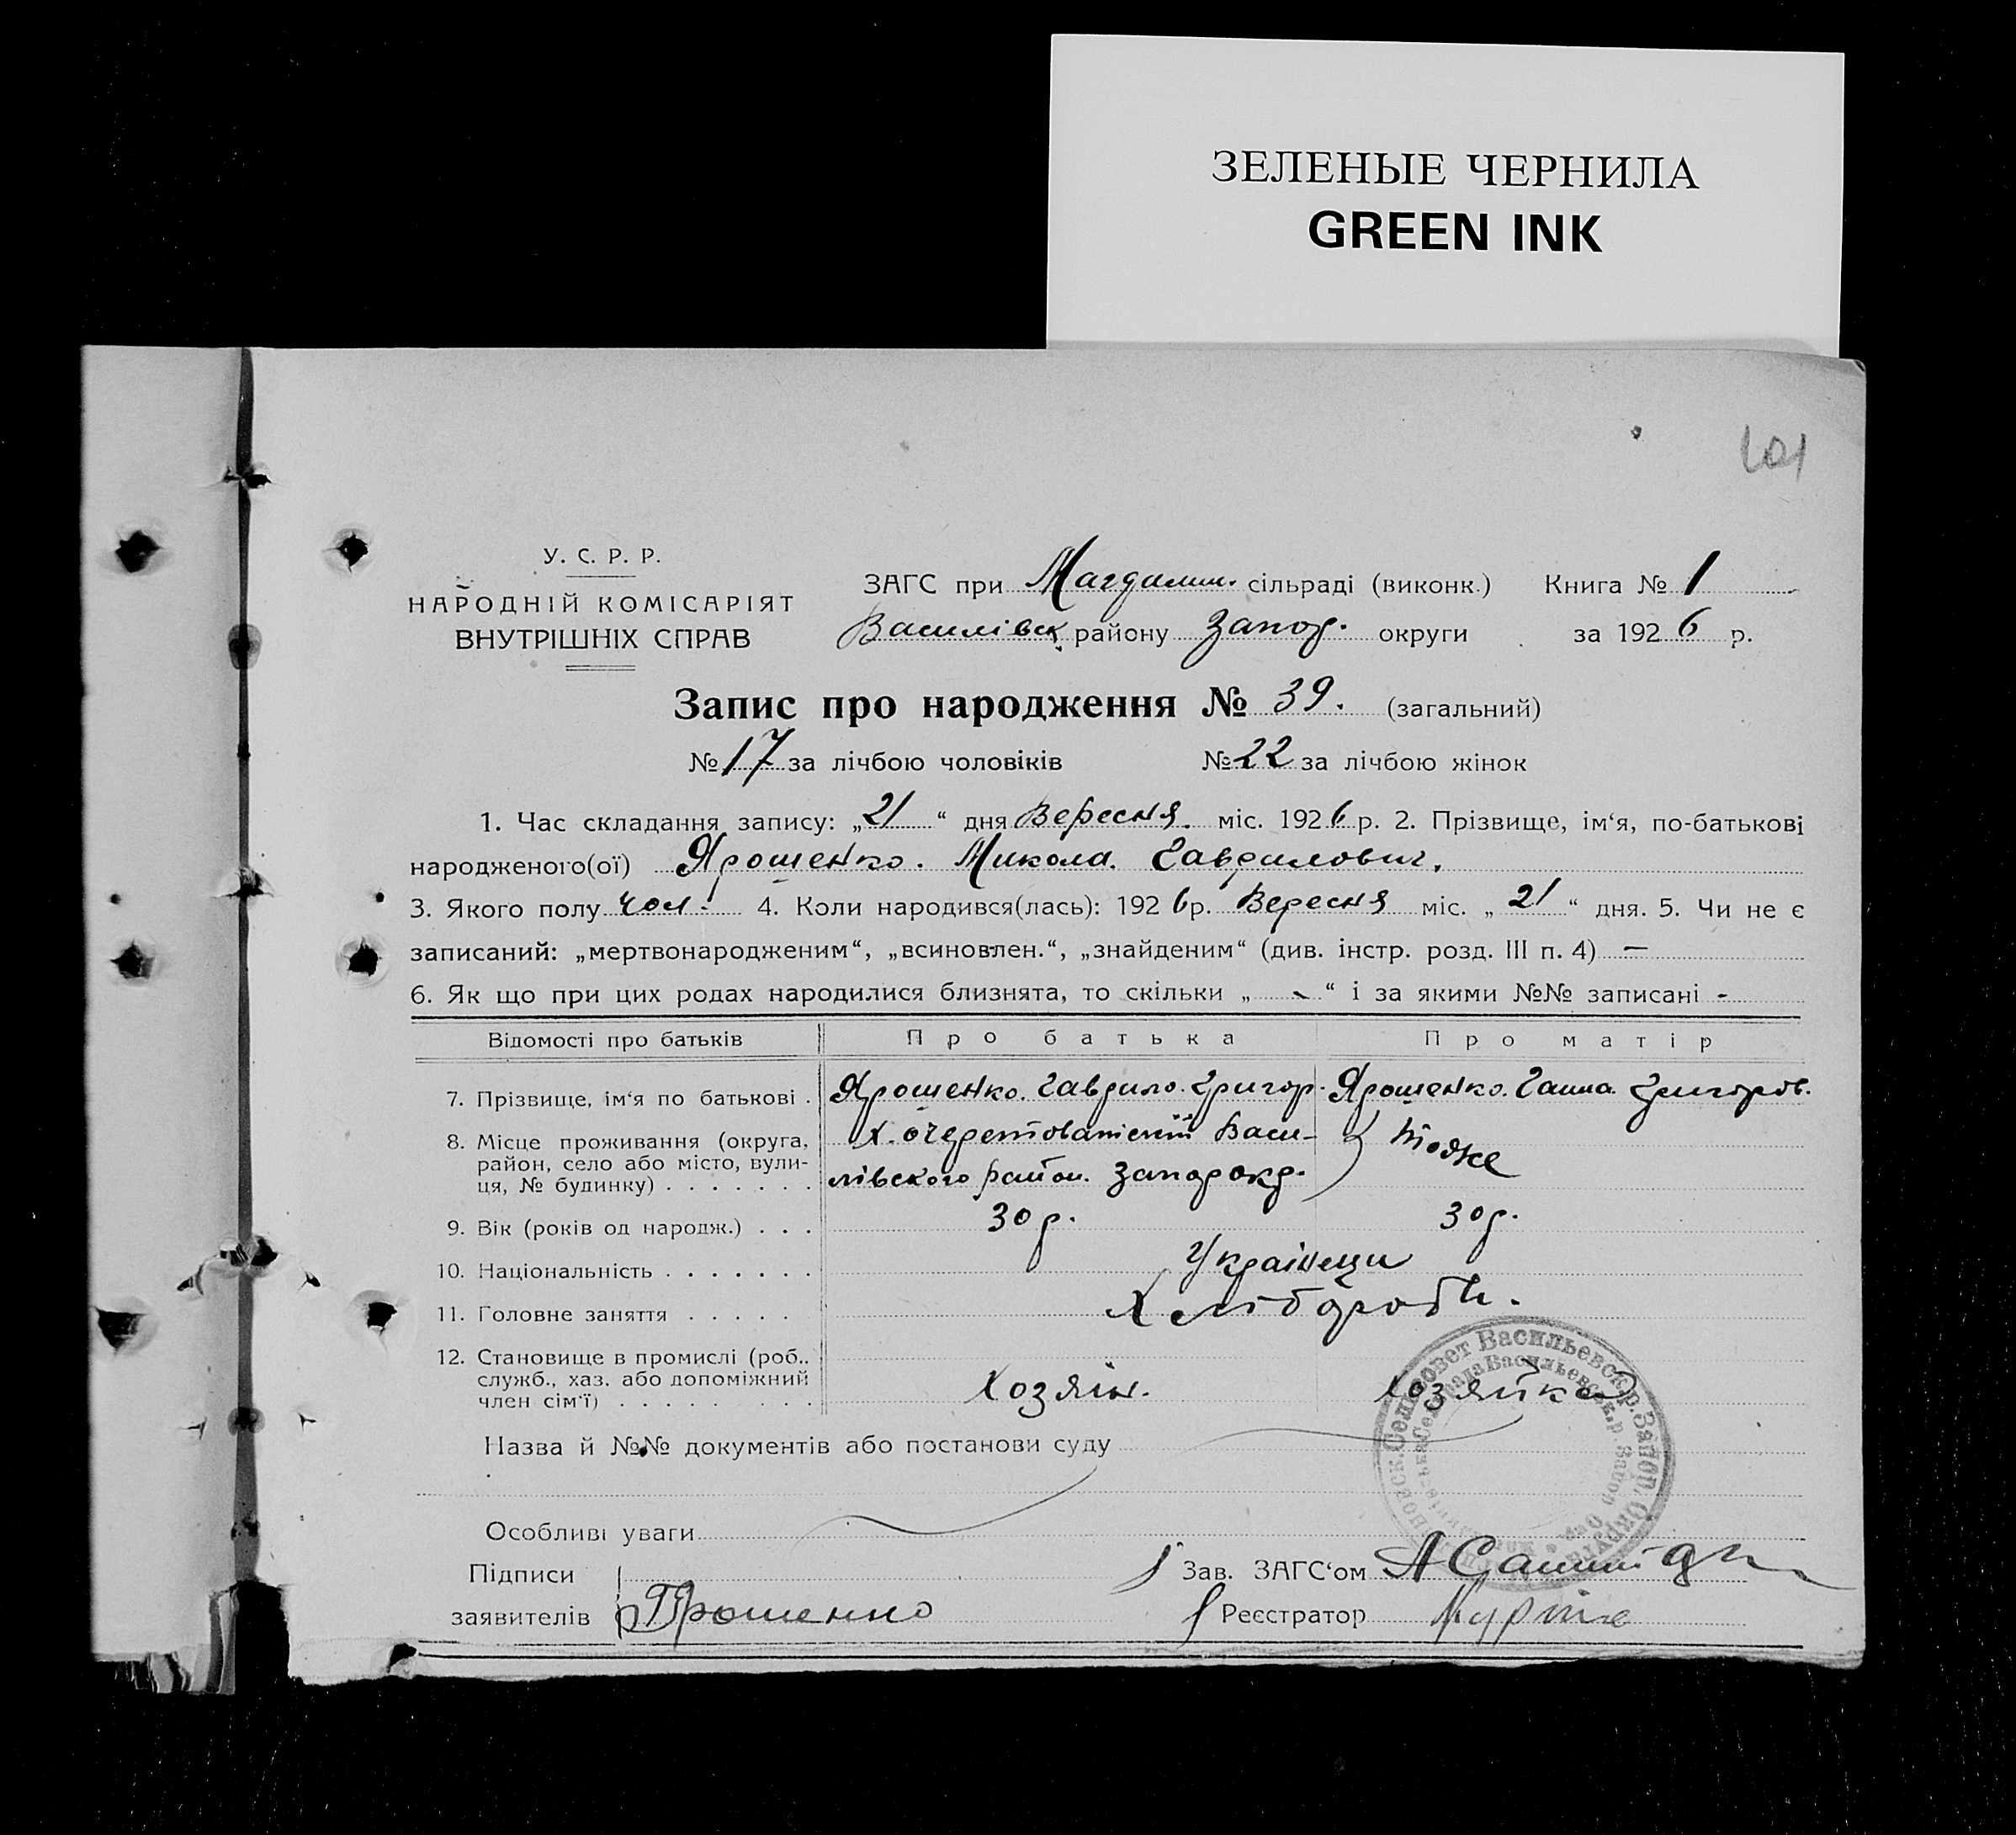 ЗЕЛЕНЫЕ ЧЕРНИЛА
GREEN INK
101
У. С. Р. Р.
НАРОДНІЙ КОМІСАРІЯТ
ВНУТРІШНІХ СПРАВ
ЗАГС при Магдалин. сільраді (виконк.) Книга № 1
Василівск. району Запор. округи за 1926 р.
Запис про народження № 39. (загальний)
№ 17 за лічбою чоловіків № 22 за лічбою жінок
1. Час складання запису: „21“ дня Вересня. міс. 1926 р. 2. Прізвище, ім‘я, по-батькові
народженого(ої) Ярошенко. Микола. Гаврилович.
3. Якого полу чол. 4. Коли народився(лась): 1926 р. Вересня міс. „21“ дня. 5. Чи не є
записаний: „мертвонародженим“, „всиновлен.“, „знайденим“ (див. інстр. розд. III п. 4) —
6. Як що при цих родах народилися близнята, то скільки „ - “ і за якими №№ записані -
Відомості про батьків Про батька Про матір
7. Прізвище, ім‘я по батькові . Ярошенко. Гаврило. Григор. Ярошенко. Ганна. Григоров.
8. Місце проживання (округа, район, село або місто, вулиця, № будинку) . . . . . . . Х. Васи-
лівского район. Запор окр. тоже
9. Вік (років од народж.) . . . 30 р. 30 р.
10. Національність . . . . . . . Українци
11. Головне заняття . . . . . Хлібороби.
12. Становище в промислі (роб., служб., хаз. або допоміжний член сім‘ї) . . . . . . . . Хозяін. Хозяйка
Назва й №№ документів або постанови суду
Особливі уваги
Підписи
заявителів Ярошенко
Зав. ЗАГС‘ом
Реєстратор
Сельсовет Васильевск. р. Запор. Окр